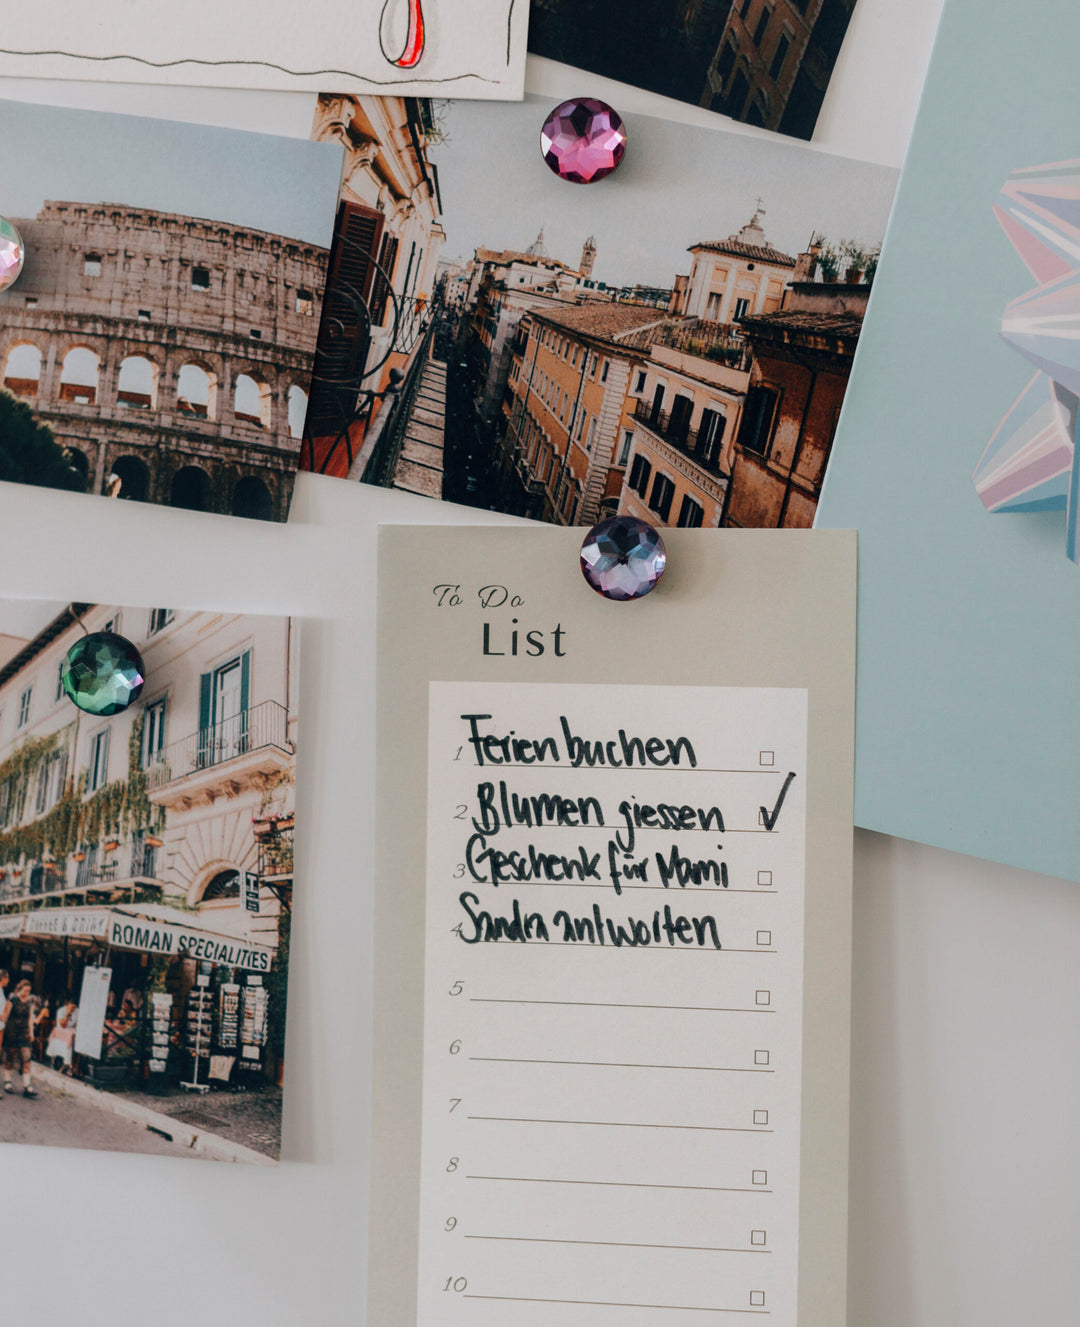 To Do
List
1 Ferien buchen
2 Blumen giessen
3 Geschenk für Mami
4 Sandra antworten
5
6
7
8
9
10
COFFEE & DRINK
ROMAN SPECIALITIES